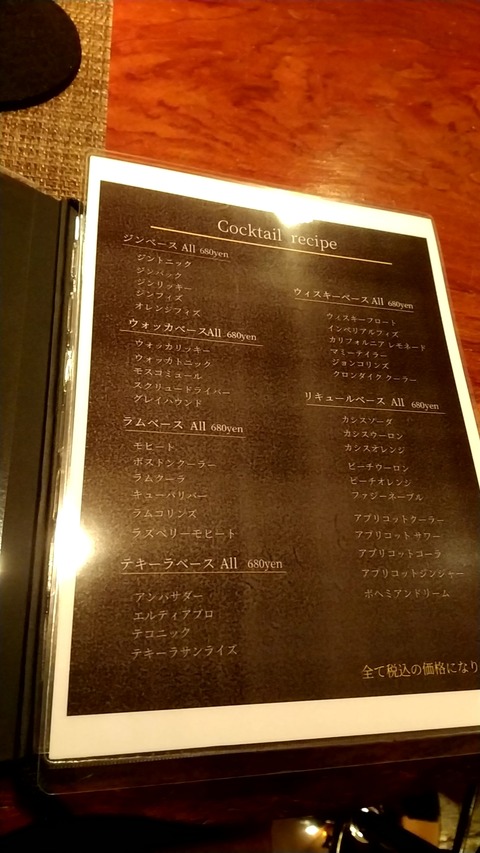 Cocktail recipe
ジンベース All 680yen
ジントニック
ジンバック
ジンリッキー
ジンフィズ
オレンジフィズ
ウォッカベースAll 680yen
ウォッカリッキー
ウォッカトニック
モスコミュール
スクリュードライバー
グレイハウンド
ラムベース All 680yen
モヒート
ボストンクーラー
ラムクーラ
キューバリバー
ラムコリンズ
ラズベリーモヒート
テキーラベース All 680yen
アンバサダー
エルディアブロ
テコニック
テキーラサンライズ
ウィスキーベース All 680yen
ウィスキーフロート
インペリアルフィズ
カリフォルニア レモネード
マミーテイラー
ジョンコリンズ
クロンダイク クーラー
リキュールベース All 680yen
カシスソーダ
カシスウーロン
カシスオレンジ
ピーチウーロン
ピーチオレンジ
ファジーネーブル
アプリコットクーラー
アプリコット サワー
アプリコットコーラ
アプリコットジンジャー
ボヘミアンドリーム
全て税込の価格になり